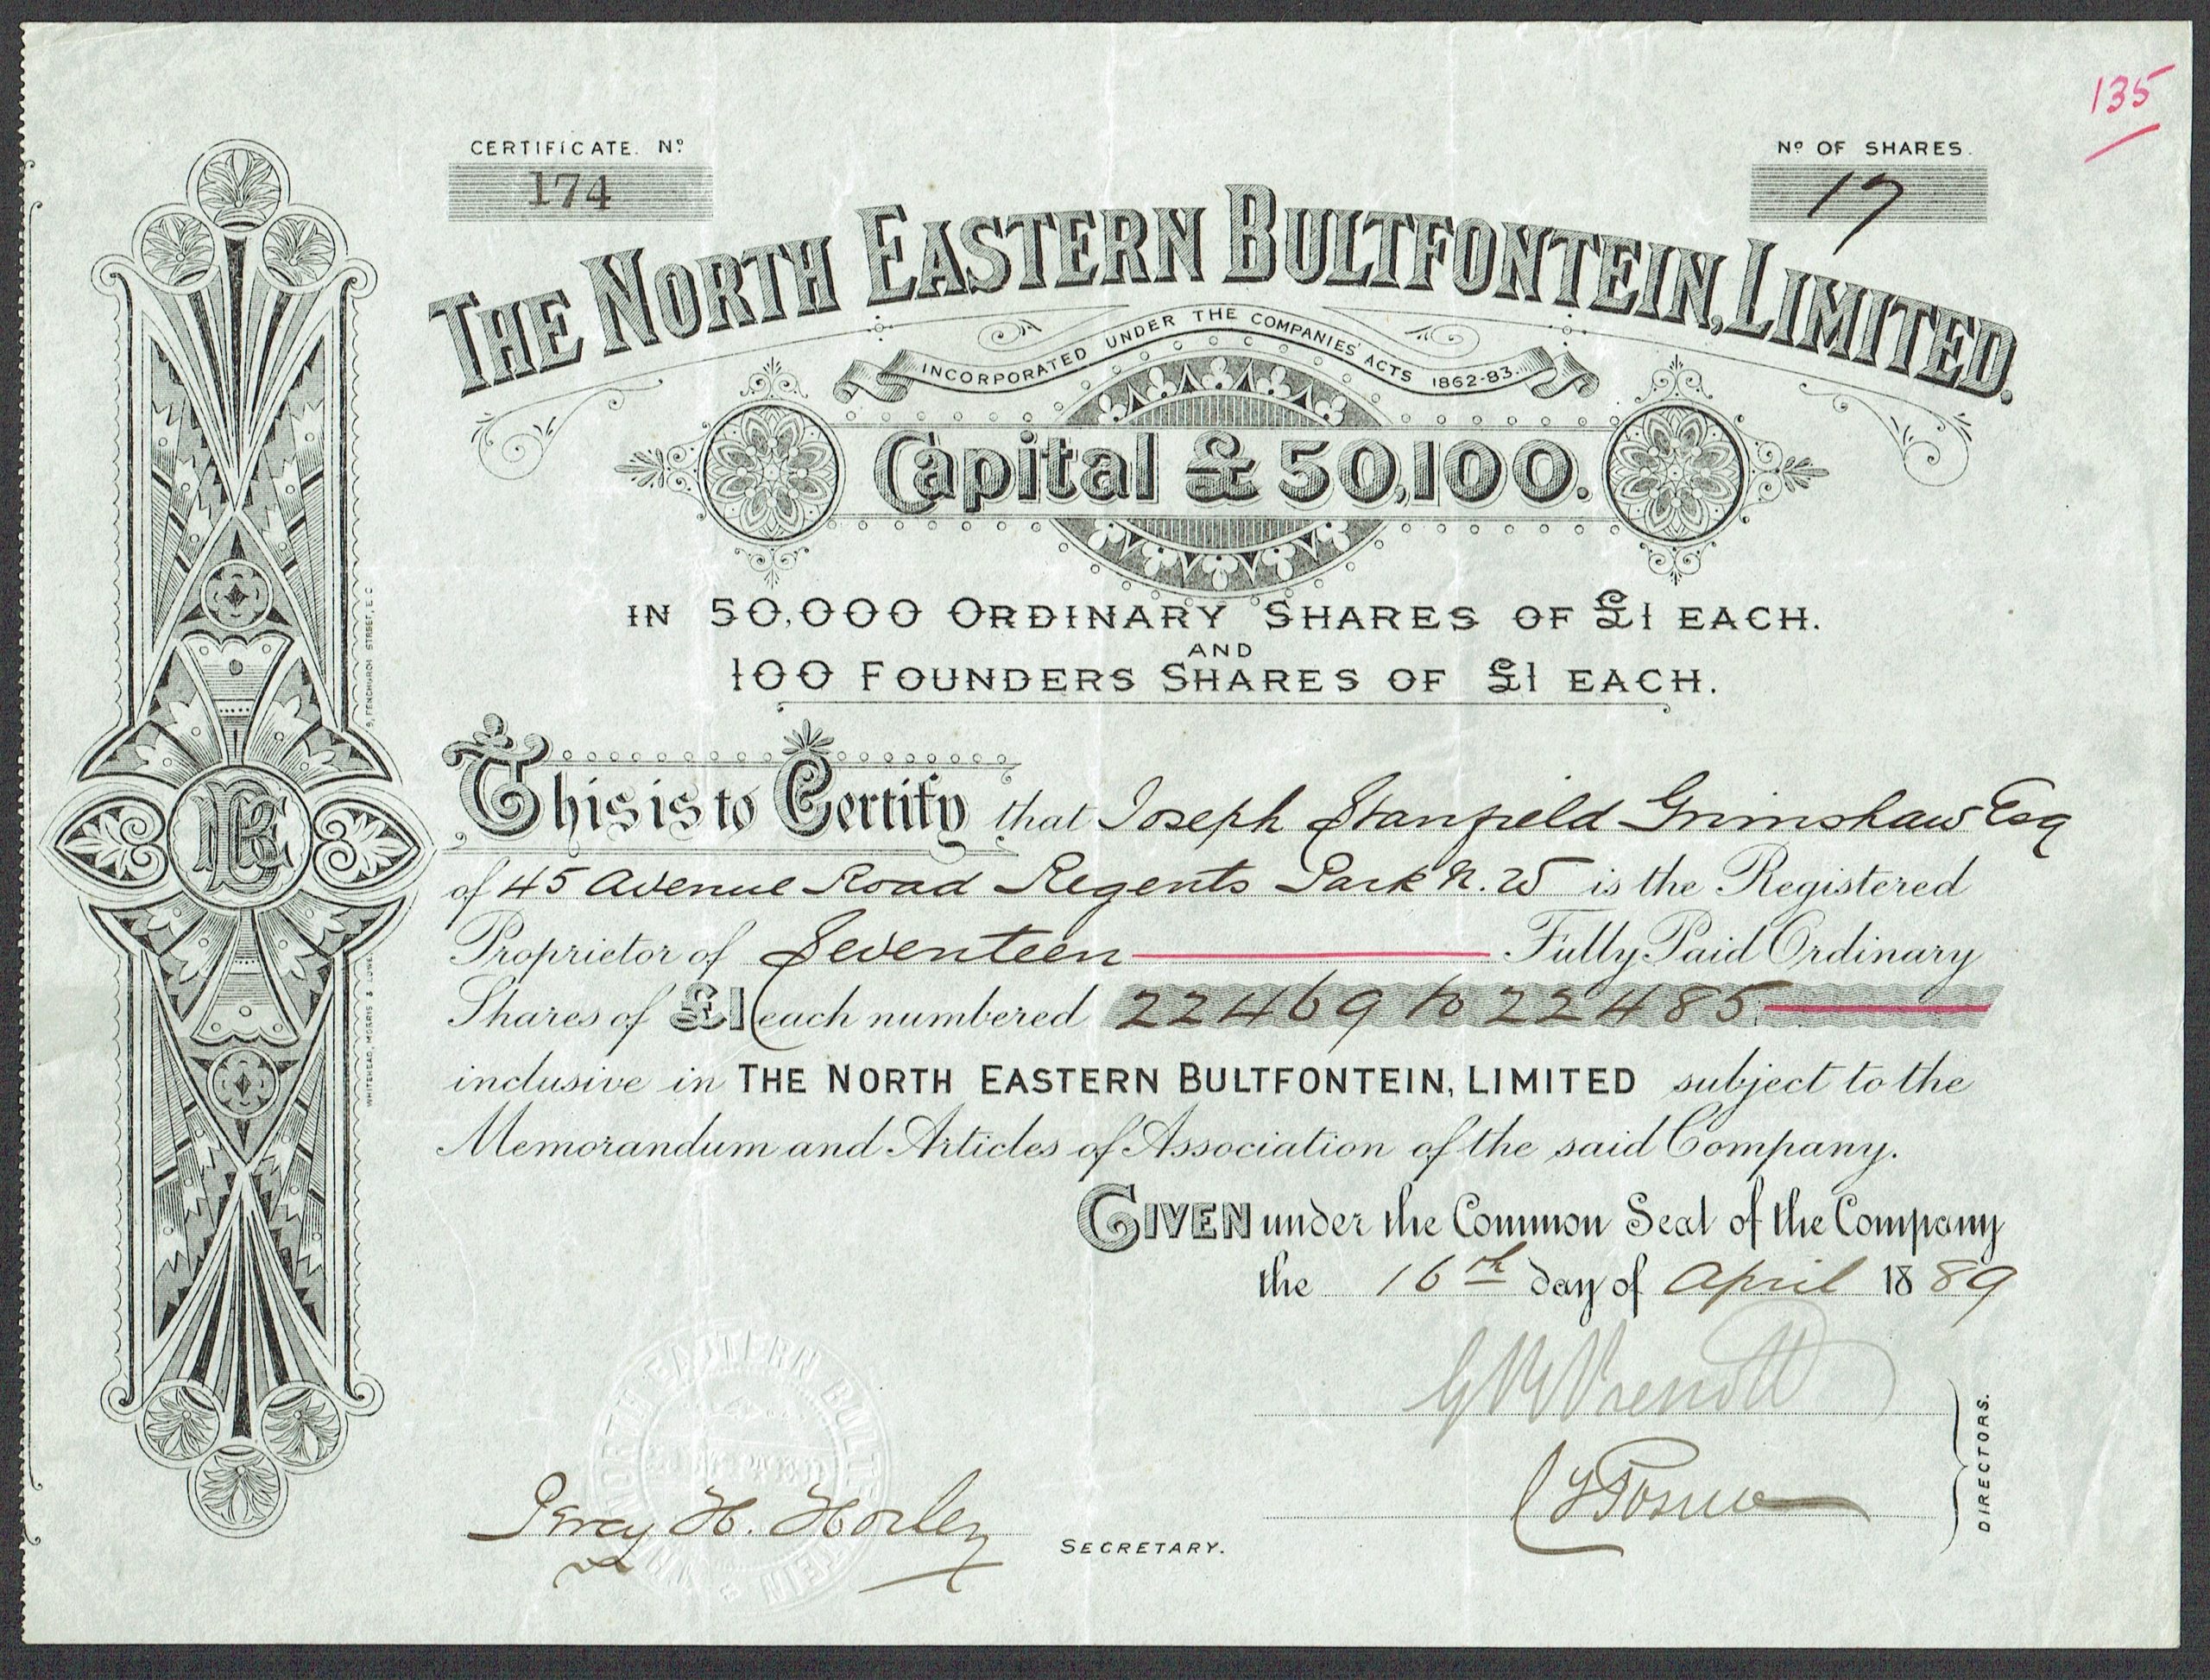 135
CERTIFICATE. Nº
174
Nº OF SHARES.
17
THE NORTH EASTERN BULTFONTEIN, LIMITED.
INCORPORATED UNDER THE COMPANIES' ACTS 1862-83.
Capital £50,100.
IN 50,000 ORDINARY SHARES OF £1 EACH.
AND
100 FOUNDERS SHARES OF £1 EACH.
This is to Certify that Joseph Stanfield Grimshaw Esq
of 45 Avenue Road Regents Park N.W is the Registered
Proprietor of Seventeen Fully Paid Ordinary
Shares of £1 each numbered 22469 to 22485
inclusive in THE NORTH EASTERN BULTFONTEIN, LIMITED subject to the
Memorandum and Articles of Association of the said Company.
GIVEN under the Common Seal of the Company
the 16th day of April 1889
DIRECTORS.
Percy H. Horley
SECRETARY.
NORTH EASTERN BULTFONTEIN
WHITEHEAD, MORRIS & LOWE, 9, FENCHURCH STREET, E.C